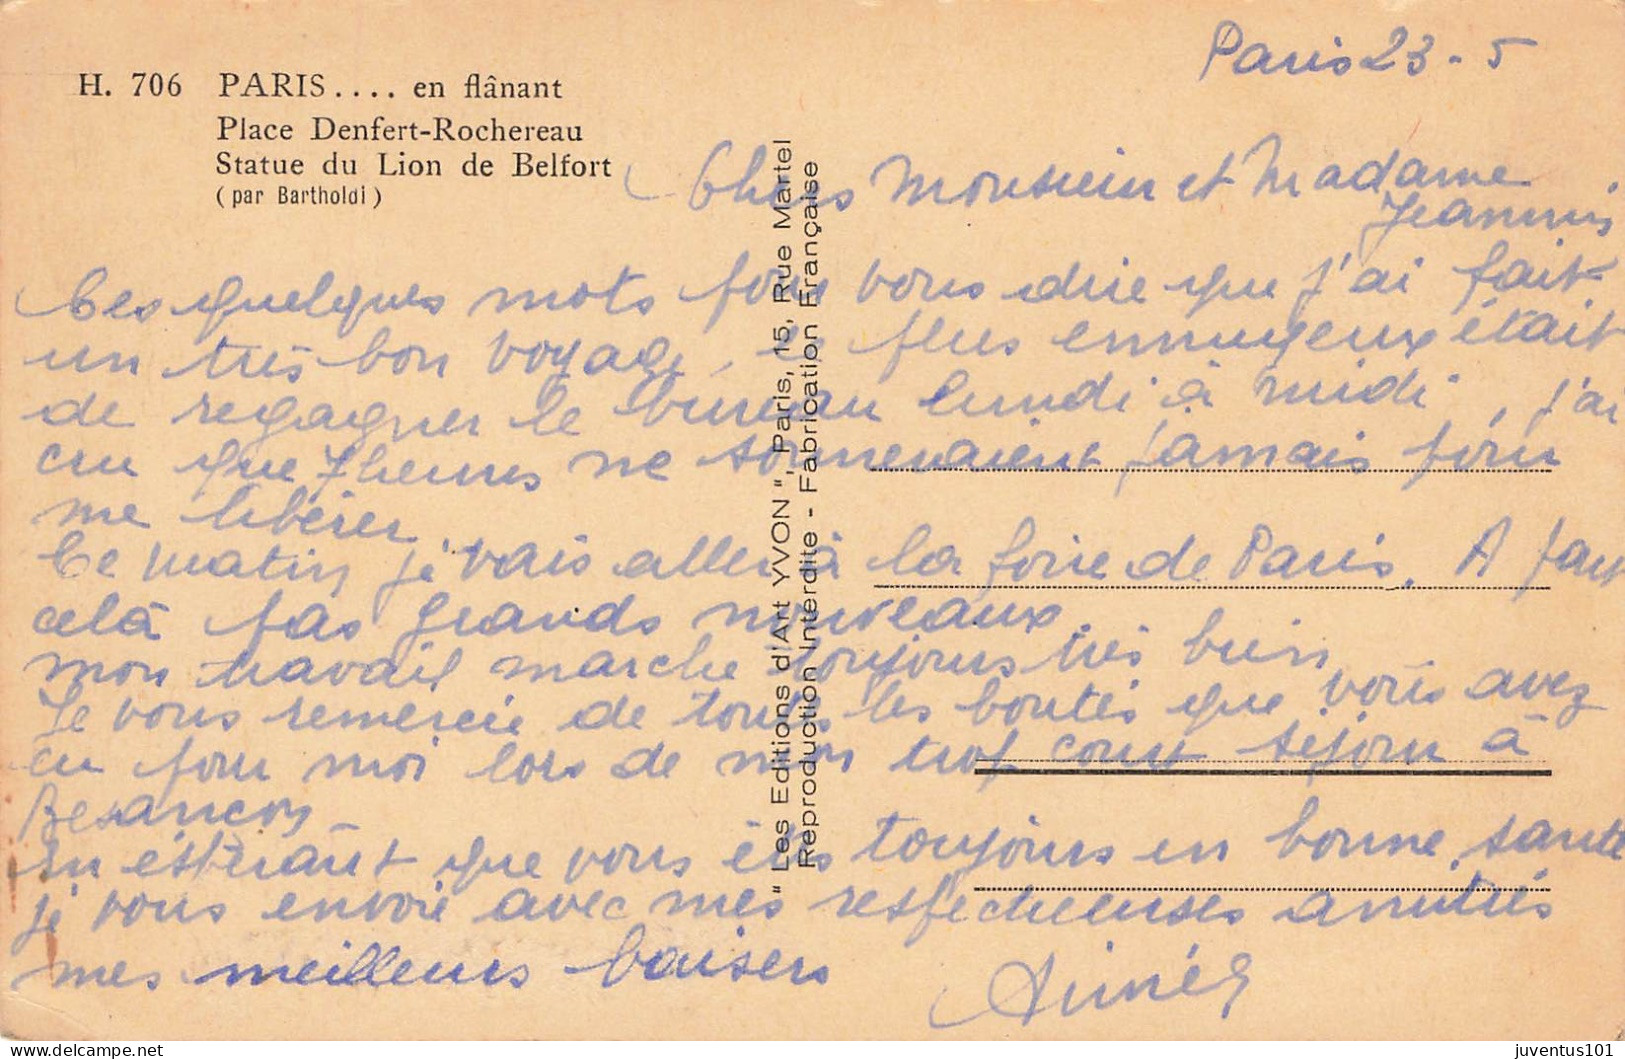 H. 706 PARIS.... en flânant
Place Denfert-Rochereau
Statue du Lion de Belfort
(par Bartholdi)
Paris 23 - 5
Chers Monsieur et Madame
Jeannin
Ces quelques mots pour vous dire que j'ai fait
un très bon voyage, le plus ennuyeux était
de regagner le bureau lundi à midi, j'ai
cru que 7 heures ne sonneraient jamais pour
me libérer
Ce matin je vais aller à la foire de Paris. A part
celà pas grands nouveaux.
mon travail marche toujours très bien
Je vous remercie de toutes les bontés que vous avez
eu pour moi lors de mon trop court séjour à
Besançon
En éspérant que vous êtes toujours en bonne santé
je vous envoie avec mes respectueuses amitiés
mes meilleurs baisers
Aimée
"Les Editions d'Art YVON", Paris, 15, Rue Martel
Reproduction Interdite - Fabrication Française
juventus101